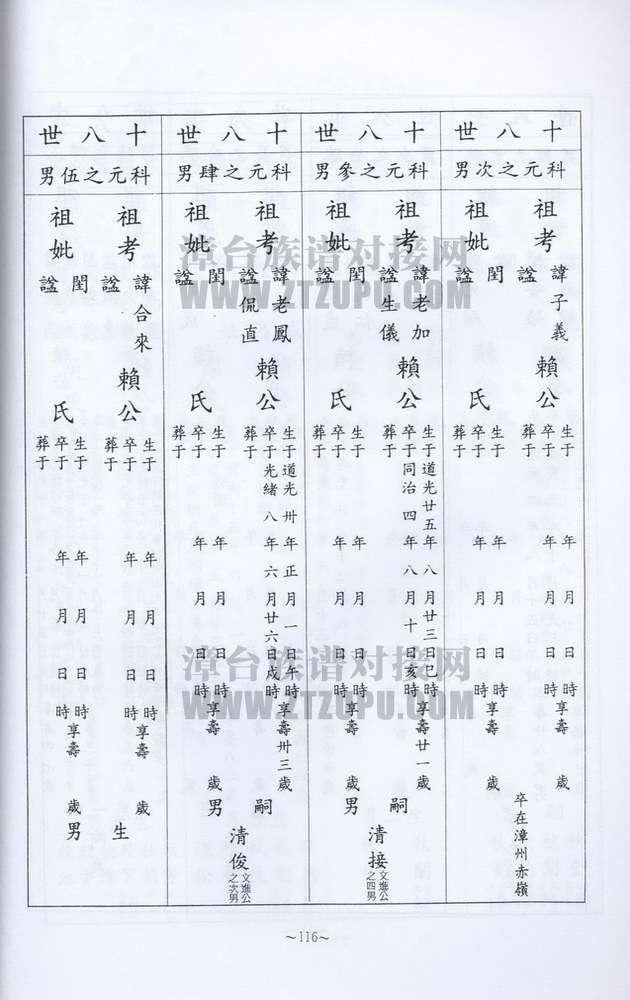 十八世
科元之次男
祖考
諱子義
賴公
生于 年 月 日 時享壽 歲
卒于 年 月 日 時
葬于
祖妣
閨
諡
氏
生于 年 月 日 時享壽 歲
卒于 年 月 日 時
葬于
卒在漳州赤嶺
十八世
科元之參男
祖考
諱老加
諡生儀
賴公
生于道光廿五年八月廿三日巳時享壽廿一歲
卒于同治四年八月十日亥時
葬于
祖妣
閨
諡
氏
生于 年 月 日 時享壽 歲
卒于 年 月 日 時
葬于
嗣男
清接
文進公之四男
十八世
科元之肆男
祖考
諱老鳳
諡侃直
賴公
生于道光卅年正月一日午時享壽卅三歲
卒于光緒八年六月廿六日戌時
葬于
祖妣
閨
諡
氏
生于 年 月 日 時享壽 歲
卒于 年 月 日 時
葬于
嗣男
清俊
文進公之次男
十八世
科元之伍男
祖考
諱合來
諡
賴公
生于 年 月 日 時享壽 歲
卒于 年 月 日 時
葬于
祖妣
閨
諡
氏
生于 年 月 日 時享壽 歲
卒于 年 月 日 時
葬于
生男
~116~
漳台族谱对接网
WWW.ZTZUPU.COM
漳台族谱对接网
WWW.ZTZUPU.COM